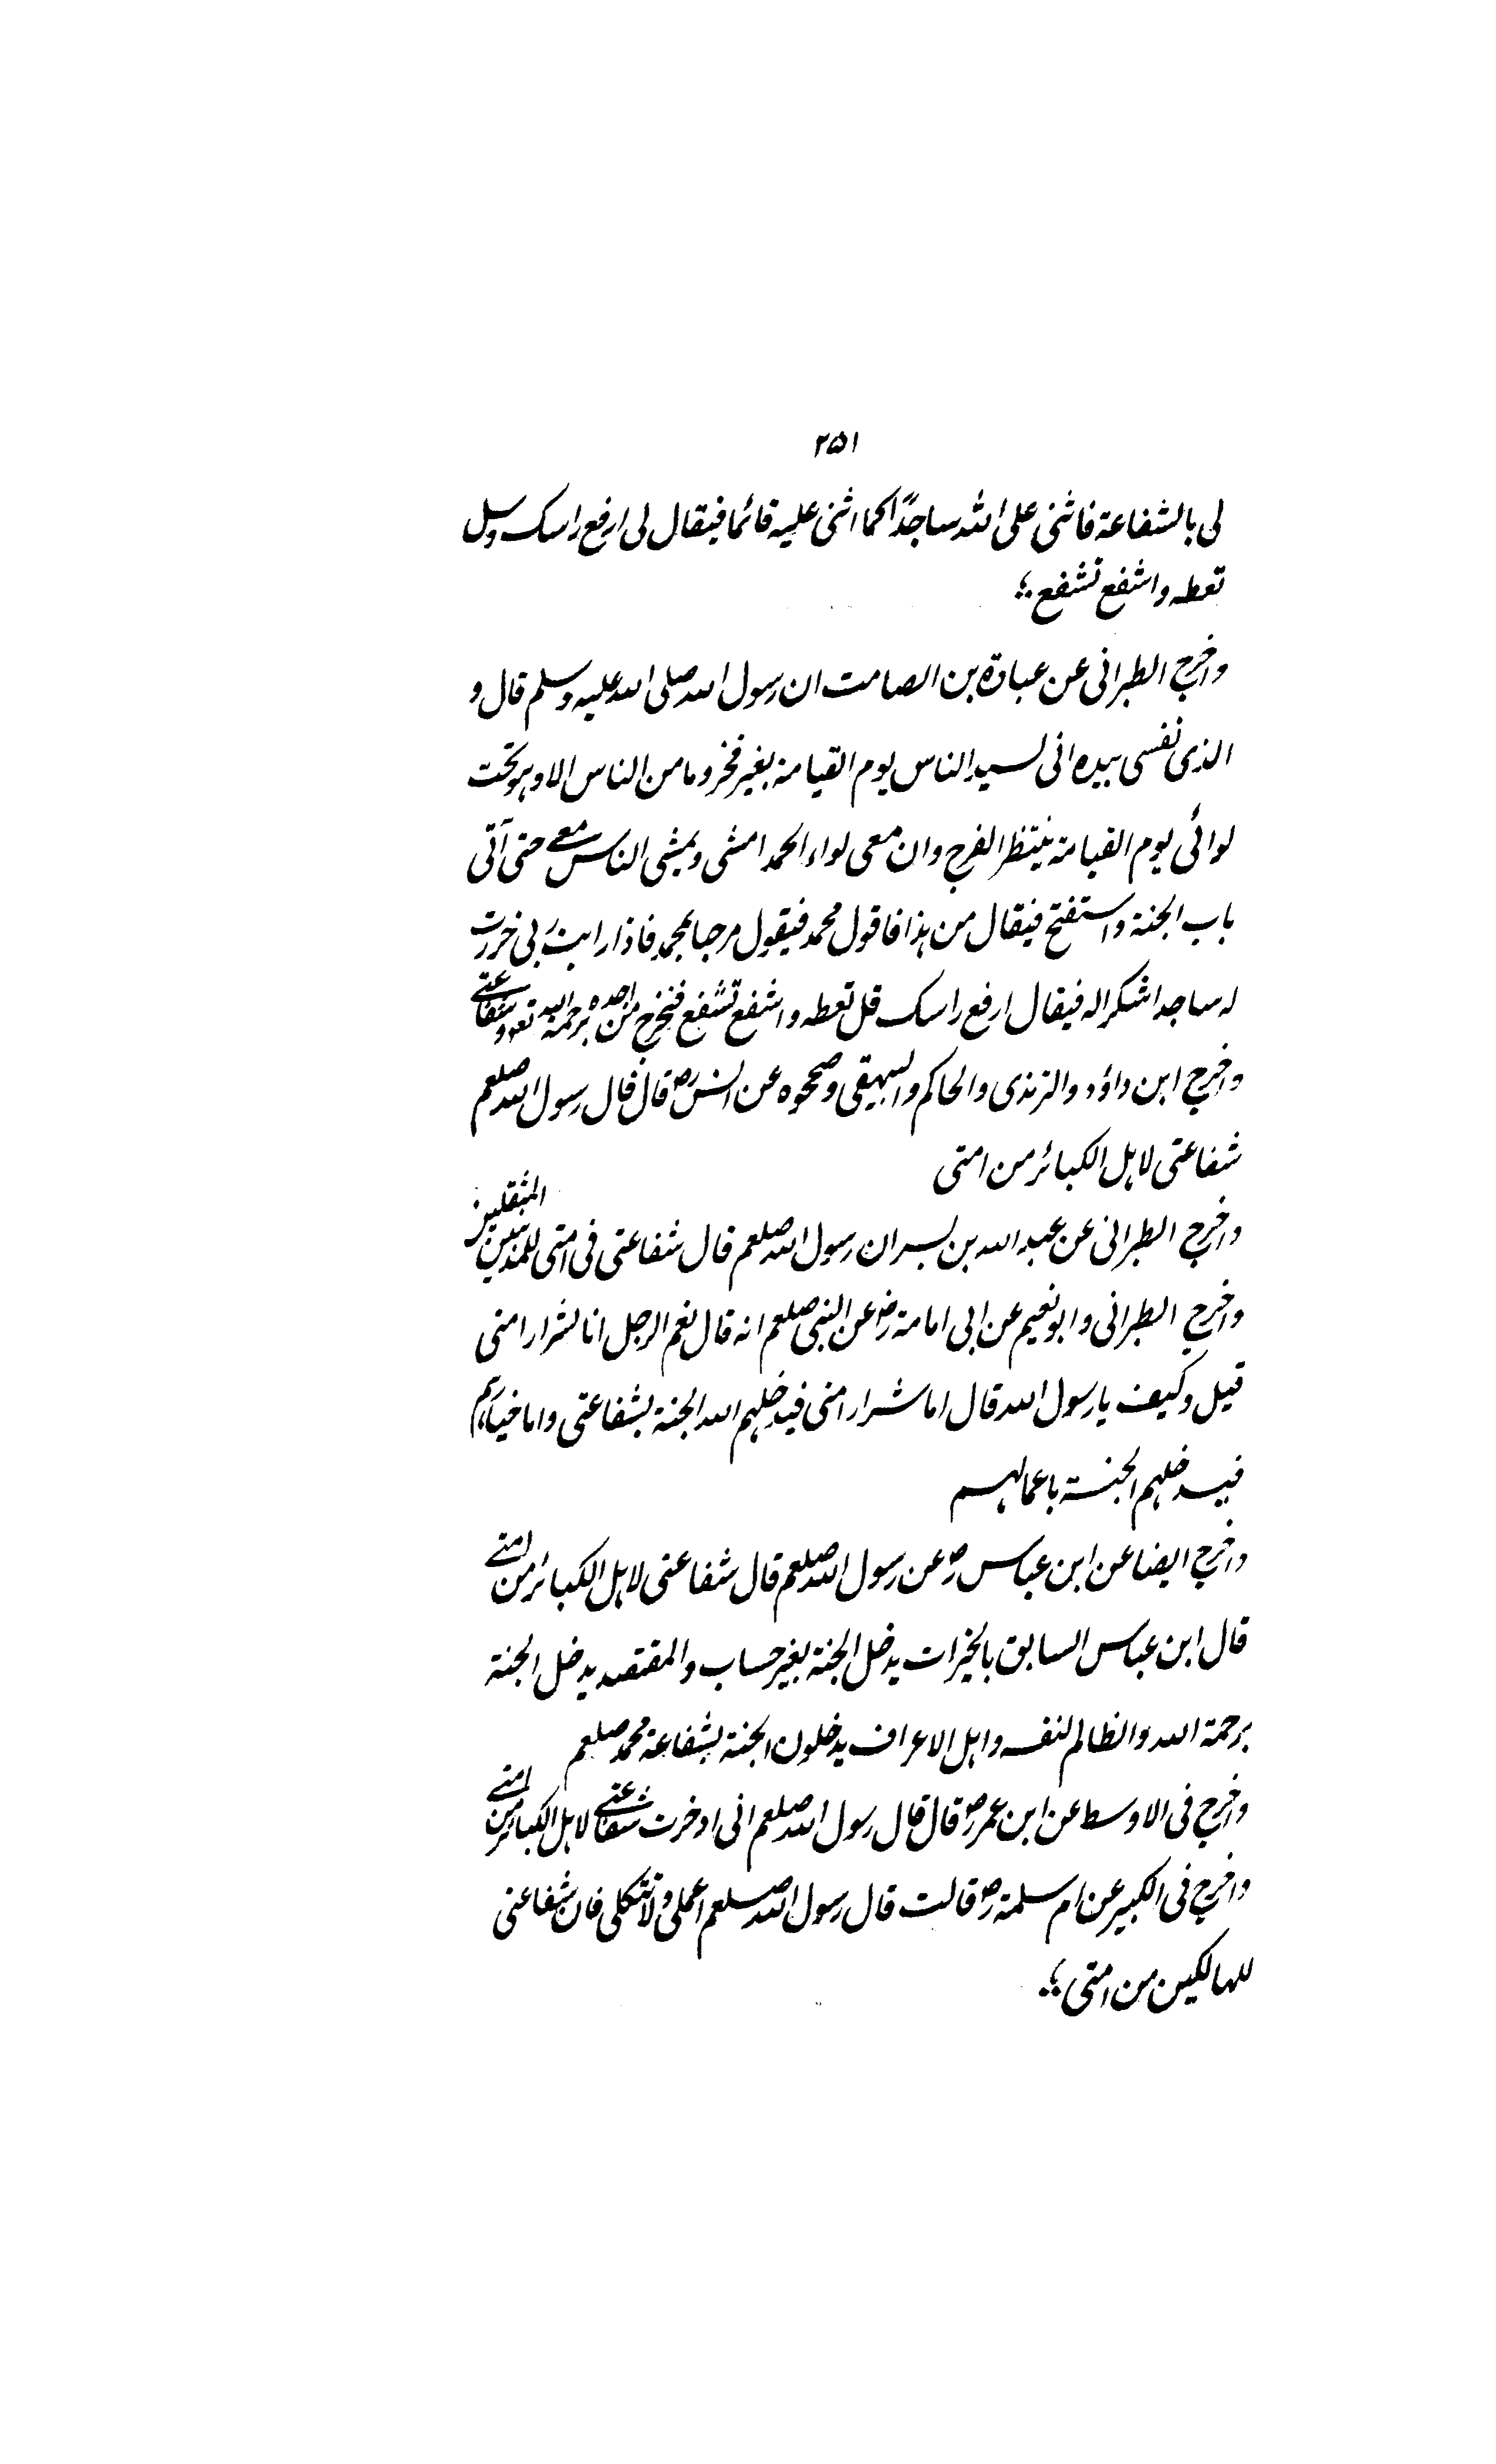 ٢٥١
لی بالشفاعة فاثنی علی الله ساجدًا کما اثنی علیه قائما فیقال لی ارفع راسک وسل
تعطه واشفع تشفع ؛
واخرج الطبرانی عن عبادة بن الصامت ان رسول الله صلی الله علیه وسلم قال و
الذی نفسی بیده انی لسید الناس یوم القیامة بغیر فخر وما من الناس الا وهو تحت
لوائی یوم القیامة ینتظر الفرج وان معی لواء الحمد امشی ویمشی الناس معے حتی آتی
باب الجنة واستفتح فیقال من هذا فاقول محمد فیقول مرحبا بمحمد فاذا رایت ربی خررت
له ساجدا شکرا له فیقال ارفع راسک قل تعطه واشفع تشفع فیخرج من احده برحمة الله تعہ وشفاعتے
واخرج ابن داؤد والترمذی والحاکم والبیهقی وصححوه عن انس رض قال قال رسول الله صلعم
شفاعتی لاهل الکبائر من امتی
واخرج الطبرانی عن عبد الله بن بسر ان رسول الله صلعم قال شفاعتی فی امتی للمذنبین المثقلین
واخرج الطبرانی وابو نعیم عن ابی امامة رض عن النبی صلعم انه قال نعم الرجل انا لشرار امتی
قیل وکیف یا رسول الله قال اما شرار امتی فیدخلهم الله الجنة بشفاعتی واما خیارهم
فیدخلهم الجنة باعمالهم
واخرج ایضا عن ابن عباس رض عن رسول الله صلعم قال شفاعتی لاهل الکبائر من امتے
قال ابن عباس السابق بالخیرات یدخل الجنة بغیر حساب والمقتصد یدخل الجنة
برحمة الله والظالم لنفسه واهل الاعراف یدخلون الجنة بشفاعة محمد صلعم
واخرج فی الاوسط عن ابن عمر رض قال قال رسول الله صلعم انی ادخرت شفاعتے لاهل الکبائر من امتے
واخرج فی الکبیر عن ام سلمة رض قالت قال رسول الله صلعم اعملی ولا تتکلی فان شفاعتی
للهالکین من امتی ؛